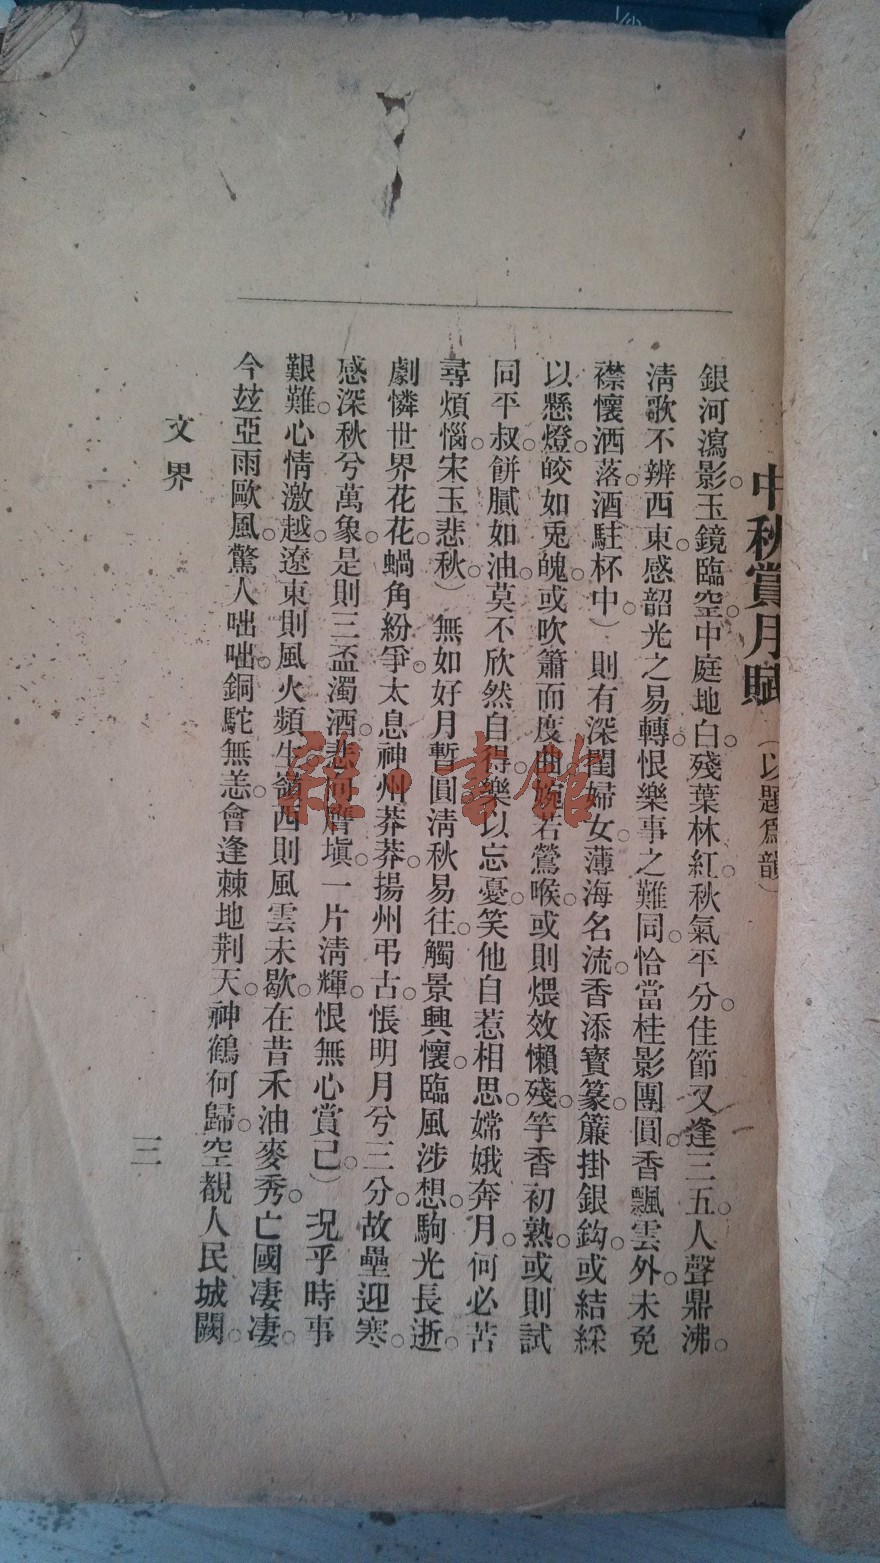 中秋賞月賦（以題爲韻）
銀河瀉影。玉鏡臨空。中庭地白。殘葉林紅。秋氣平分。佳節又逢三五。人聲鼎沸。
淸歌不辨西東。感韶光之易轉。恨樂事之難同。恰當桂影團圓。香飄雲外。未免
襟懷洒落。酒駐杯中）則有深閨婦女。薄海名流。香添寳篆。簾掛銀鈎。或結綵
以懸燈。皎如兎魄。或吹簫而度曲。婉若鶯喉。或則煨效懶殘。竽香初熟。或則試
同平叔。餠膩如油。莫不欣然自得。樂以忘憂。笑他自惹相思。嫦娥奔月。何必苦
尋煩惱。宋玉悲秋）無如好月暫圓。淸秋易往。觸景興懷。臨風涉想。駒光長逝。
劇憐世界花花。蝸角紛爭。太息神州莽莽。揚州弔古。悵明月兮三分。故壘迎寒。
感深秋兮萬象。是則三盃濁酒。悲何膺塡。一片淸輝。恨無心賞已。）况乎時事
艱難。心情激越。遼東則風火頻生。嶺西則風雲未歇。在昔禾油麥秀。亡國凄凄。
今玆亞雨歐風。驚人咄咄。銅駝無恙。會逢棘地荆天。神鶴何歸。空覩人民城闕。
文界
三
雜·書館